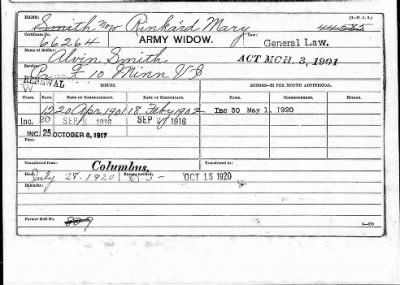 NAME: Smith now Rinkard Mary (3-R.S.)
Certificate No. 66264 ARMY WIDOW. Law: 44565
Name of Soldier: General Law.
Alvin Smith ACT MCH. 3, 1901
Service: Pvt F 10 Minn Vol
RENEWAL
W
CLASS. ISSUES. MINORS—$2 PER MONTH ADDITIONAL.
RATE. DATE OF COMMENCEMENT. DATE OF CERTIFICATE. NAME. COMMENCEMENT. ENDING.
12 20 Apr 1901 18 Feby 1902 Inc 30 May 1, 1920
Inc. 20 SEP 8 1916 SEP 1916
INC. 25 OCTOBER 6, 1917
Transferred from: Columbus, Transferred to:
Died July 28, 1920 OCT 15 1920
Remarks:
Former Roll No.